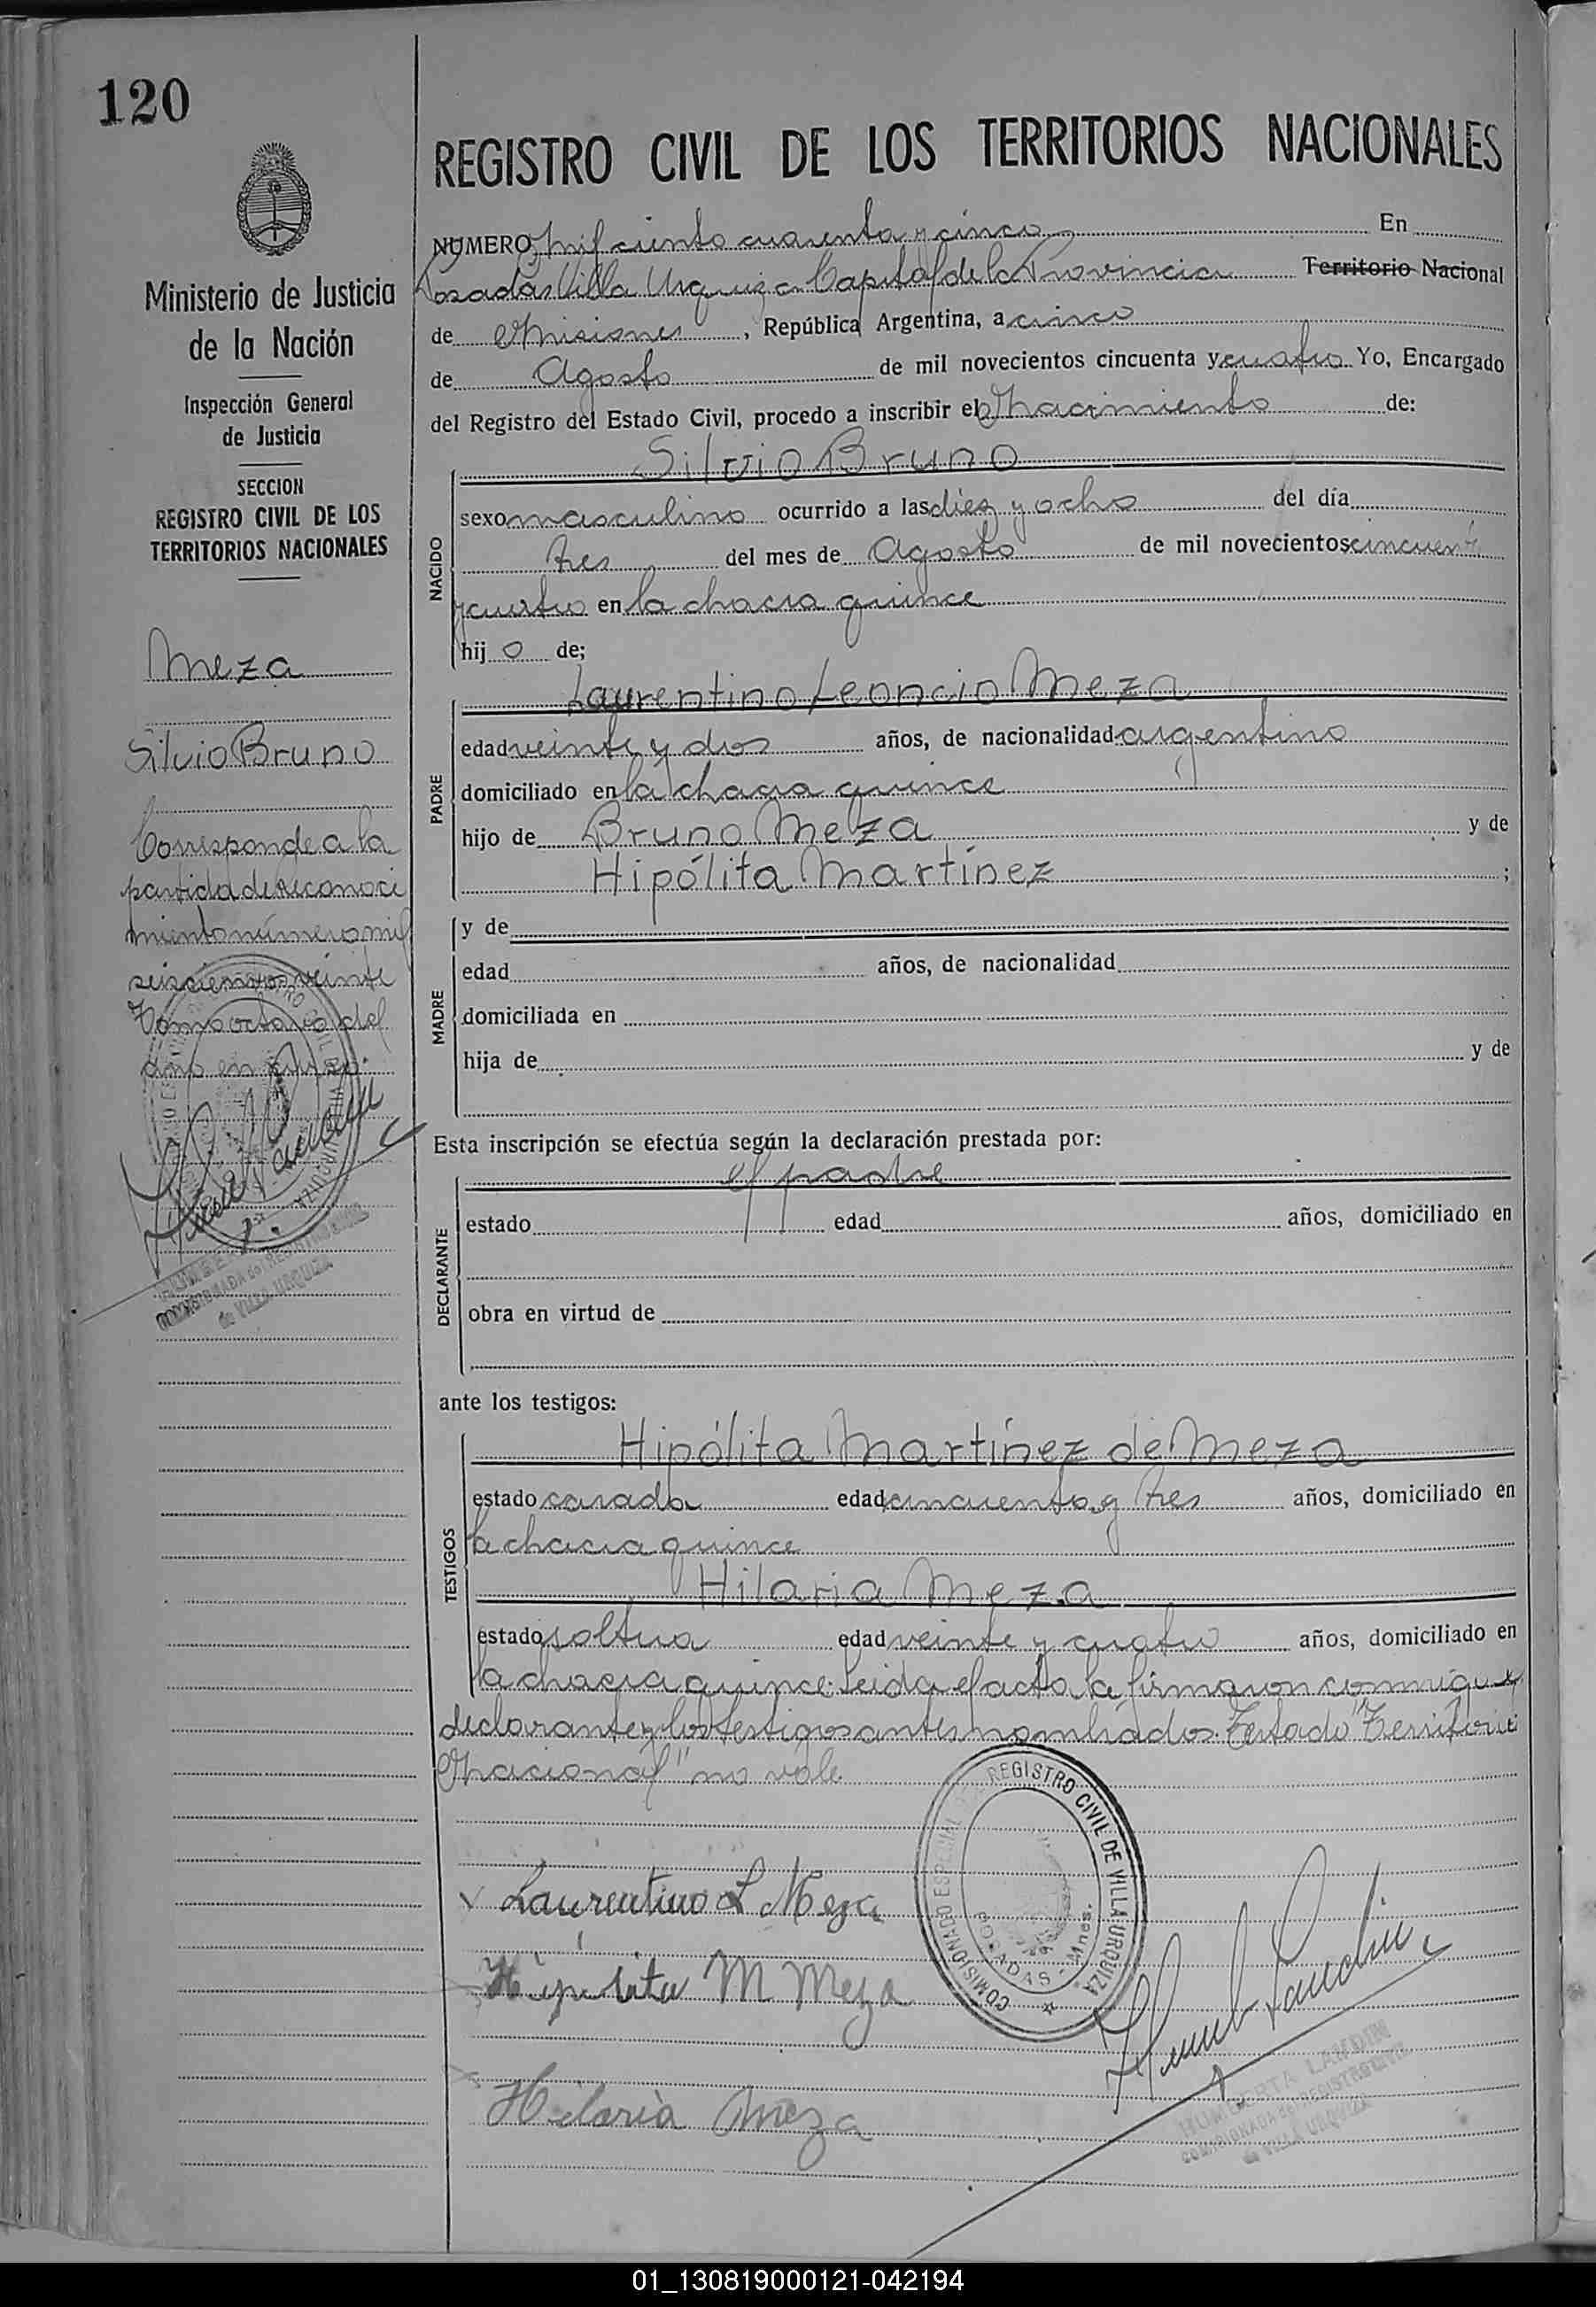 120
REGISTRO CIVIL DE LOS TERRITORIOS NACIONALES
Ministerio de Justicia
de la Nación
Inspección General
de Justicia
SECCION
REGISTRO CIVIL DE LOS
TERRITORIOS NACIONALES
Meza
Silvio Bruno
Corresponde a la
partida de reconoci
miento número mil
seiscientos veinte
Tomo octavo del
año en curso.
NUMERO mil ciento cuarenta y cinco En
Posadas Villa Urquiza Capital de la Provincia Territorio Nacional
de Misiones, República Argentina, a cinco
de Agosto de mil novecientos cincuenta y cuatro Yo, Encargado
del Registro del Estado Civil, procedo a inscribir el Nacimiento de:
NACIDO
Silvio Bruno
sexo masculino ocurrido a las diez y ocho del día
tres del mes de Agosto de mil novecientos cincuenta
y cuatro en la chacra quince
hij o de;
PADRE
Laurentino Leoncio Meza
edad veinte y dos años, de nacionalidad argentino
domiciliado en la chacra quince
hijo de Bruno Meza y de
Hipólita Martínez ;
MADRE
y de
edad años, de nacionalidad
domiciliada en
hija de y de
Esta inscripción se efectúa según la declaración prestada por:
DECLARANTE
el padre
estado edad años, domiciliado en
obra en virtud de
ante los testigos:
TESTIGOS
Hipólita Martínez de Meza
estado casada edad cincuenta y tres años, domiciliado en
la chacra quince
Hilaria Meza
estado soltera edad veinte y cuatro años, domiciliado en
la chacra quince. Leida el acta la firmaron conmigo el
declarante y los testigos antes nombrados. Testado "Territorio
Nacional" no vale
COMISIONADO ESPECIAL REGISTRO CIVIL DE VILLA URQUIZA
POSADAS - Mnes.
Laurentino L Meza
Hipólita M Meza
Hilaria Meza
HUMBERTA LANDIN
COMISIONADA de REGISTRO CIVIL
de VILLA URQUIZA
01_130819000121-042194